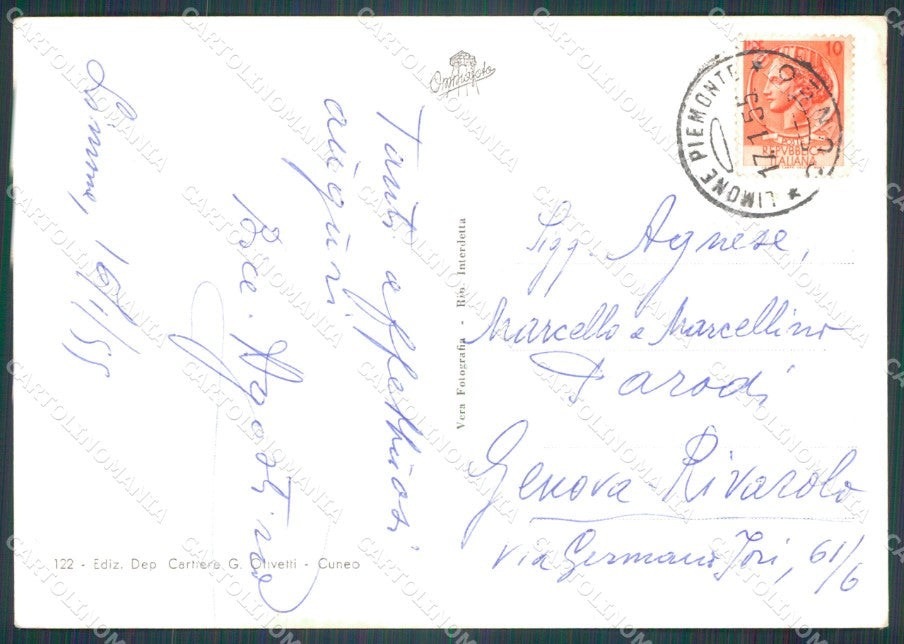 Limone, 16/1/55
Tanti affettuosi
auguri.
Agostino
Omniafoto
Vera Fotografia - Rip. Interdetta
10
REPVBBLICA
ITALIANA
LIMONE PIEMONTE * CUNEO *
17.1.55
Sigg. Agnese,
Marcello e Marcellino
Parodi
Genova Rivarolo
Via Germano Jori, 61/6
122 - Ediz. Dep. Cartiere G. Olivetti - Cuneo
CARTOLINOMANIA